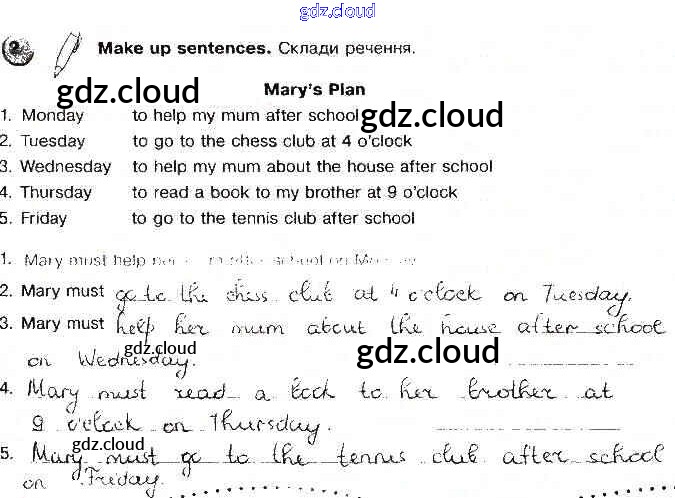 gdz.cloud
2 Make up sentences. Склади речення.
Mary's Plan
gdz.cloud gdz.cloud
1. Monday to help my mum after school
gdz.cloud
2. Tuesday to go to the chess club at 4 o'clock
3. Wednesday to help my mum about the house after school
4. Thursday to read a book to my brother at 9 o'clock
5. Friday to go to the tennis club after school
1. Mary must help her school on
2. Mary must go to the chess club at 4 o'clock on Tuesday.
3. Mary must help her mum about the house after school
gdz.cloud gdz.cloud
on Wednesday.
4. Mary must read a book to her brother at
9 o'clock on Thursday.
gdz.cloud
5. Mary must go to the tennis club after school
gdz.cloud
on Friday.